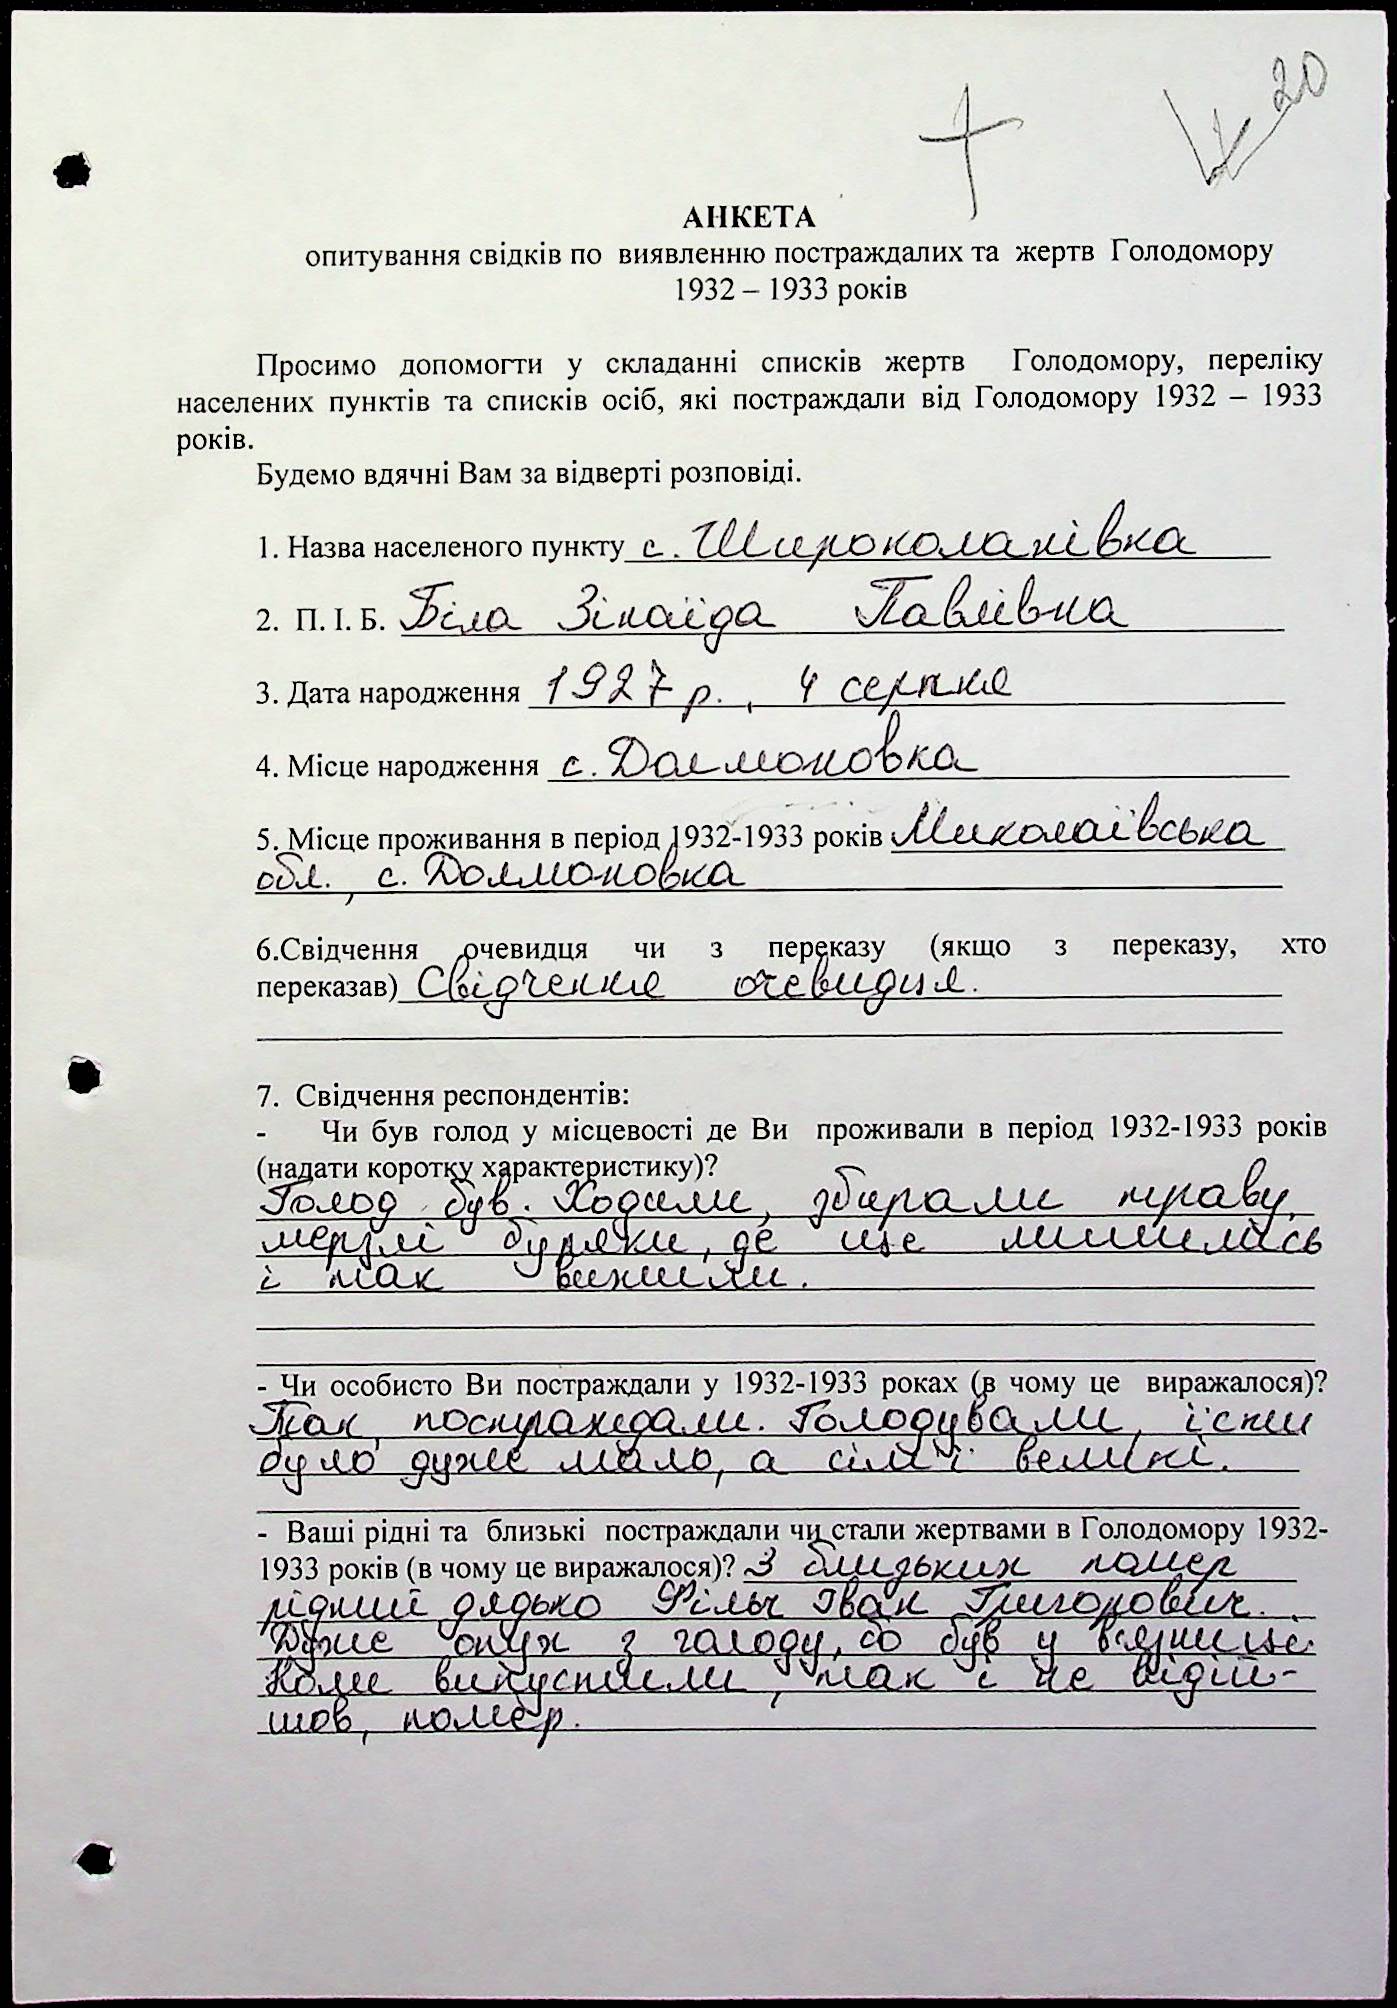 20
АНКЕТА
опитування свідків по виявленню постраждалих та жертв Голодомору
1932 – 1933 років
Просимо допомогти у складанні списків жертв Голодомору, переліку
населених пунктів та списків осіб, які постраждали від Голодомору 1932 – 1933
років.
Будемо вдячні Вам за відверті розповіді.
1. Назва населеного пункту с. Широколанівка
2. П. І. Б. Біла Зінаїда Павлівна
3. Дата народження 1927 р., 4 серпня
4. Місце народження с. Долмоновка
5. Місце проживання в період 1932-1933 років Миколаївська
обл., с. Долмоновка
6.Свідчення очевидця чи з переказу (якщо з переказу, хто
переказав) Свідчення очевидця.
7. Свідчення респондентів:
- Чи був голод у місцевості де Ви проживали в період 1932-1933 років
(надати коротку характеристику)?
Голод був. Ходили, збирали траву,
мерзлі буряки, де ще лишились
і так вижили.
- Чи особисто Ви постраждали у 1932-1933 роках (в чому це виражалося)?
Так, постраждали. Голодували, їсти
було дуже мало, а сім'ї великі.
- Ваші рідні та близькі постраждали чи стали жертвами в Голодомору 1932-
1933 років (в чому це виражалося)? З близьких помер
рідний дядько Фільч Іван Григорович.
Дуже опух з голоду, бо був у вязниці.
Коли випустили, так і не відій-
шов, помер.